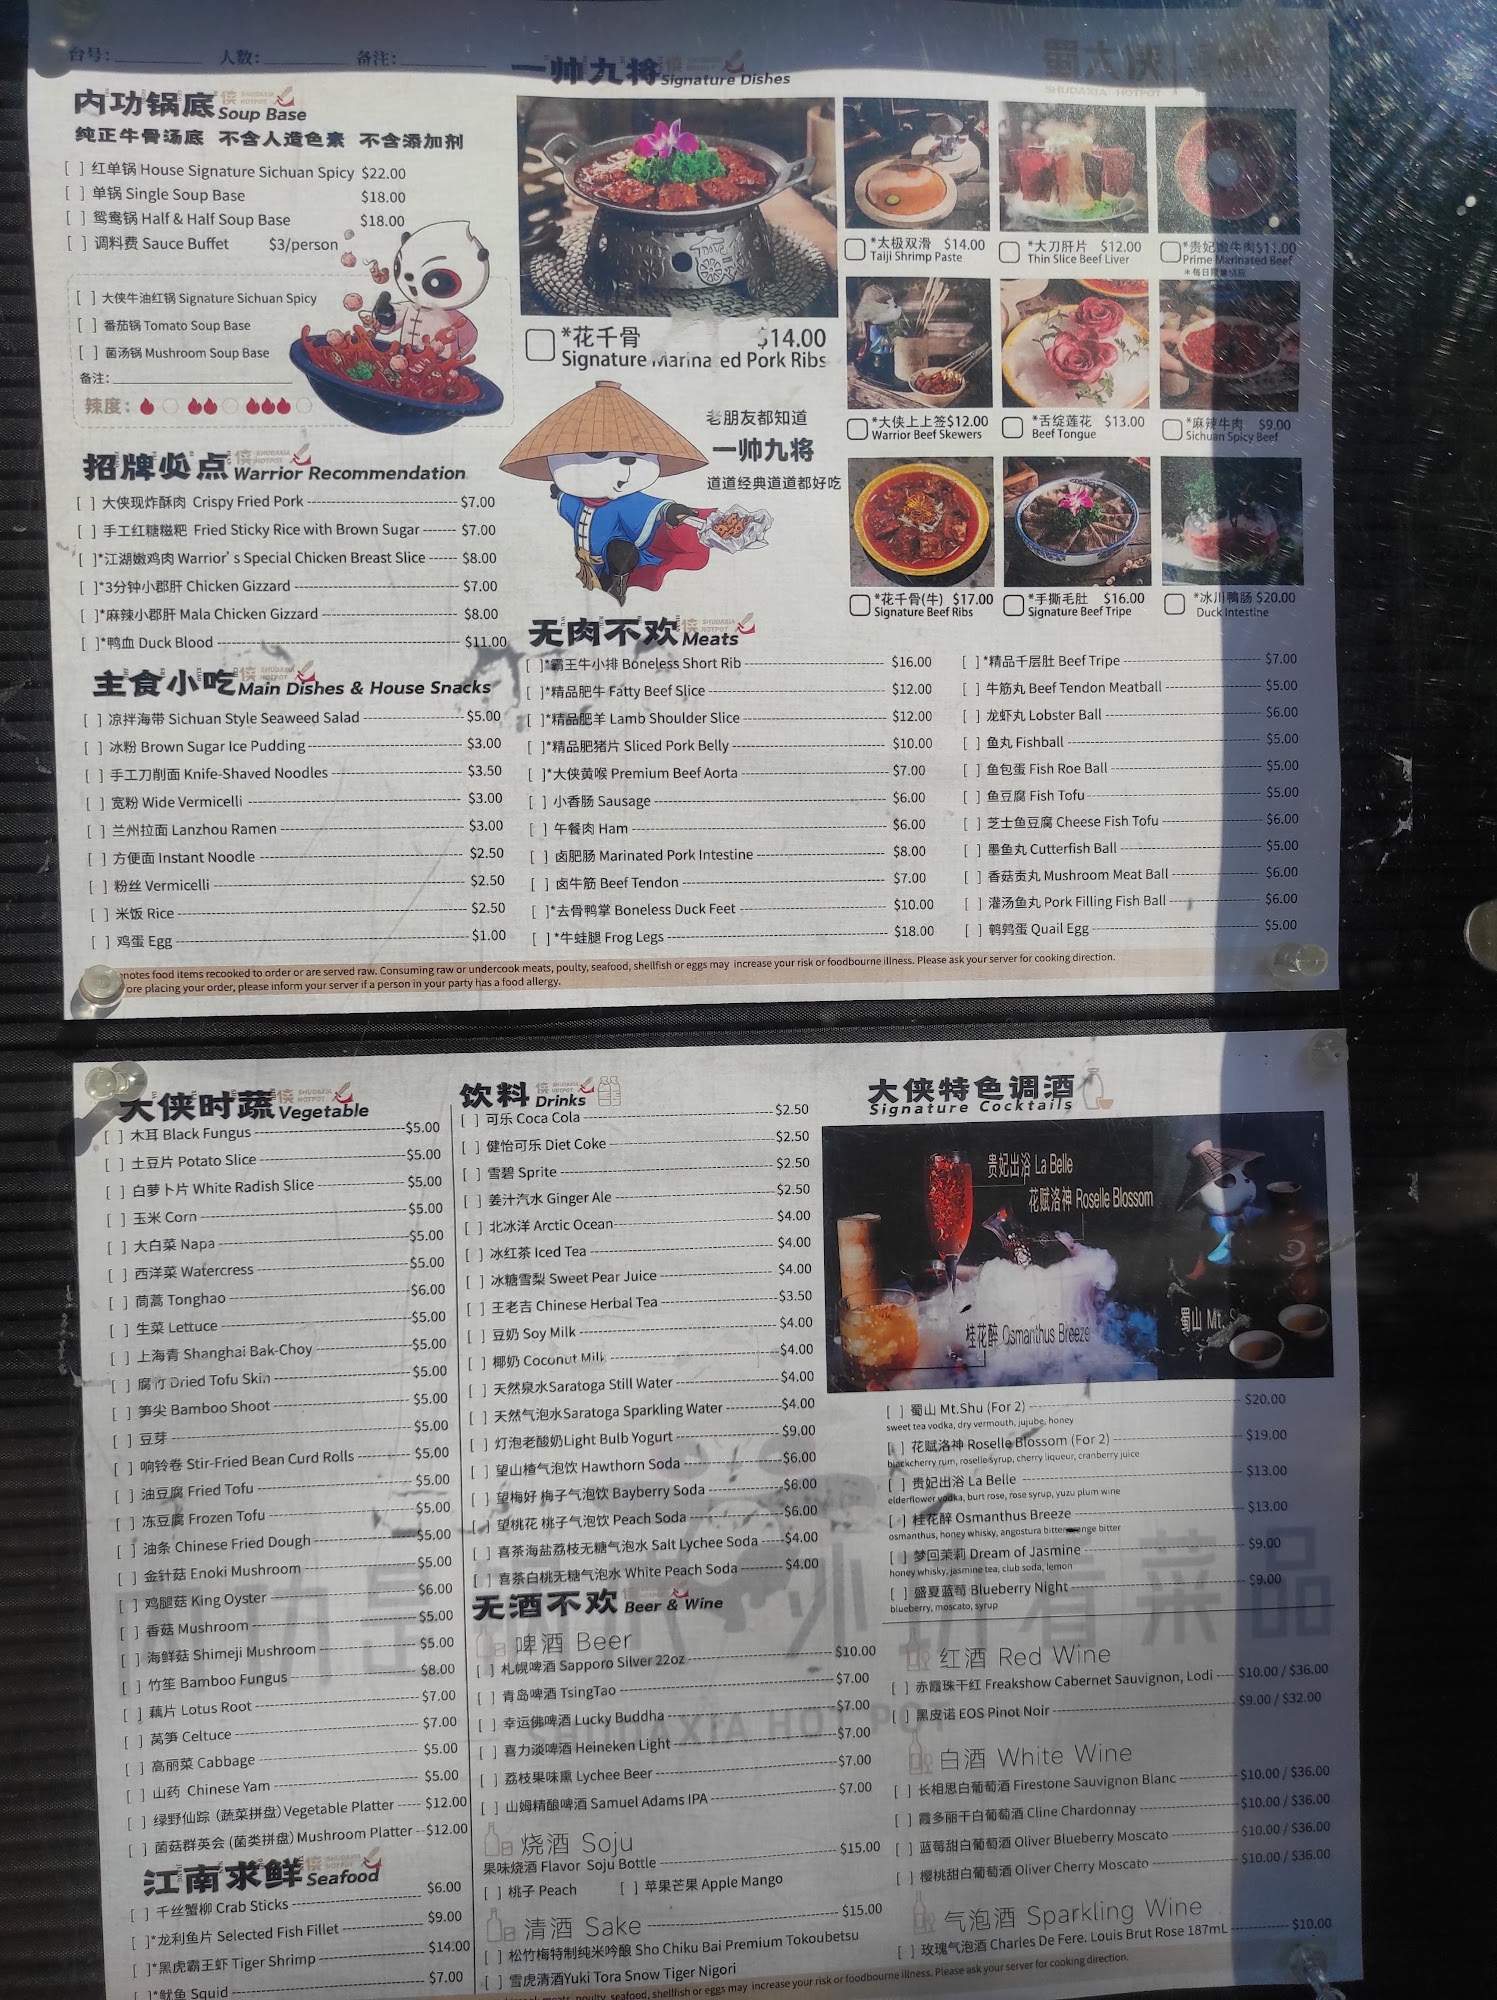 台号: 人数: 备注:
内功锅底 Soup Base
纯正牛骨汤底 不含人造色素 不含添加剂
[ ] 红单锅 House Signature Sichuan Spicy $22.00
[ ] 单锅 Single Soup Base $18.00
[ ] 鸳鸯锅 Half & Half Soup Base $18.00
[ ] 调料费 Sauce Buffet $3/person
[ ] 大侠牛油红锅 Signature Sichuan Spicy
[ ] 番茄锅 Tomato Soup Base
[ ] 菌汤锅 Mushroom Soup Base
备注:
辣度:
招牌必点 Warrior Recommendation
[ ] 大侠现炸酥肉 Crispy Fried Pork $7.00
[ ] 手工红糖糍粑 Fried Sticky Rice with Brown Sugar $7.00
[ ]*江湖嫩鸡肉 Warrior's Special Chicken Breast Slice $8.00
[ ]*3分钟小郡肝 Chicken Gizzard $7.00
[ ]*麻辣小郡肝 Mala Chicken Gizzard $8.00
[ ]*鸭血 Duck Blood $11.00
主食小吃 Main Dishes & House Snacks
[ ] 凉拌海带 Sichuan Style Seaweed Salad $5.00
[ ] 冰粉 Brown Sugar Ice Pudding $3.00
[ ] 手工刀削面 Knife-Shaved Noodles $3.50
[ ] 宽粉 Wide Vermicelli $3.00
[ ] 兰州拉面 Lanzhou Ramen $3.00
[ ] 方便面 Instant Noodle $2.50
[ ] 粉丝 Vermicelli $2.50
[ ] 米饭 Rice $2.50
[ ] 鸡蛋 Egg $1.00
一帅九将 Signature Dishes
*花千骨 $14.00
Signature Marinated Pork Ribs
老朋友都知道
一帅九将
道道经典道道都好吃
*太极双滑 $14.00
Taiji Shrimp Paste
*大刀肝片 $12.00
Thin Slice Beef Liver
*贵妃嫩牛肉 $11.00
Prime Marinated Beef
*大侠上上签 $12.00
Warrior Beef Skewers
*舌绽莲花 $13.00
Beef Tongue
*麻辣牛肉 $9.00
Sichuan Spicy Beef
*花千骨(牛) $17.00
Signature Beef Ribs
*手撕毛肚 $16.00
Signature Beef Tripe
*冰川鸭肠 $20.00
Duck Intestine
无肉不欢 Meats
[ ]*霸王牛小排 Boneless Short Rib $16.00
[ ]*精品肥牛 Fatty Beef Slice $12.00
[ ]*精品肥羊 Lamb Shoulder Slice $12.00
[ ]*精品肥猪片 Sliced Pork Belly $10.00
[ ]*大侠黄喉 Premium Beef Aorta $7.00
[ ] 小香肠 Sausage $6.00
[ ] 午餐肉 Ham $6.00
[ ] 卤肥肠 Marinated Pork Intestine $8.00
[ ] 卤牛筋 Beef Tendon $7.00
[ ]*去骨鸭掌 Boneless Duck Feet $10.00
[ ]*牛蛙腿 Frog Legs $18.00
[ ]*精品千层肚 Beef Tripe $7.00
[ ] 牛筋丸 Beef Tendon Meatball $5.00
[ ] 龙虾丸 Lobster Ball $6.00
[ ] 鱼丸 Fishball $5.00
[ ] 鱼包蛋 Fish Roe Ball $5.00
[ ] 鱼豆腐 Fish Tofu $5.00
[ ] 芝士鱼豆腐 Cheese Fish Tofu $6.00
[ ] 墨鱼丸 Cutterfish Ball $5.00
[ ] 香菇贡丸 Mushroom Meat Ball $6.00
[ ] 灌汤鱼丸 Pork Filling Fish Ball $6.00
[ ] 鹌鹑蛋 Quail Egg $5.00
notes food items recooked to order or are served raw. Consuming raw or undercook meats, poulty, seafood, shellfish or eggs may increase your risk or foodbourne illness. Please ask your server for cooking direction.
ore placing your order, please inform your server if a person in your party has a food allergy.
大侠时蔬 Vegetable
[ ] 木耳 Black Fungus $5.00
[ ] 土豆片 Potato Slice $5.00
[ ] 白萝卜片 White Radish Slice $5.00
[ ] 玉米 Corn $5.00
[ ] 大白菜 Napa $5.00
[ ] 西洋菜 Watercress $5.00
[ ] 茼蒿 Tonghao $6.00
[ ] 生菜 Lettuce $5.00
[ ] 上海青 Shanghai Bak-Choy $5.00
[ ] 腐竹 Dried Tofu Skin $5.00
[ ] 笋尖 Bamboo Shoot $5.00
[ ] 豆芽 $5.00
[ ] 响铃卷 Stir-Fried Bean Curd Rolls $5.00
[ ] 油豆腐 Fried Tofu $5.00
[ ] 冻豆腐 Frozen Tofu $5.00
[ ] 油条 Chinese Fried Dough $5.00
[ ] 金针菇 Enoki Mushroom $5.00
[ ] 鸡腿菇 King Oyster $6.00
[ ] 香菇 Mushroom $5.00
[ ] 海鲜菇 Shimeji Mushroom $5.00
[ ] 竹笙 Bamboo Fungus $8.00
[ ] 藕片 Lotus Root $7.00
[ ] 莴笋 Celtuce $7.00
[ ] 高丽菜 Cabbage $5.00
[ ] 山药 Chinese Yam $5.00
[ ] 绿野仙踪 (蔬菜拼盘) Vegetable Platter $12.00
[ ] 菌菇群英会 (菌类拼盘) Mushroom Platter $12.00
江南求鲜 Seafood
[ ] 千丝蟹柳 Crab Sticks $6.00
[ ]*龙利鱼片 Selected Fish Fillet $9.00
[ ]*黑虎霸王虾 Tiger Shrimp $14.00
[ ]*鱿鱼 Squid $7.00
饮料 Drinks
[ ] 可乐 Coca Cola $2.50
[ ] 健怡可乐 Diet Coke $2.50
[ ] 雪碧 Sprite $2.50
[ ] 姜汁汽水 Ginger Ale $2.50
[ ] 北冰洋 Arctic Ocean $4.00
[ ] 冰红茶 Iced Tea $4.00
[ ] 冰糖雪梨 Sweet Pear Juice $4.00
[ ] 王老吉 Chinese Herbal Tea $3.50
[ ] 豆奶 Soy Milk $4.00
[ ] 椰奶 Coconut Milk $4.00
[ ] 天然泉水Saratoga Still Water $4.00
[ ] 天然气泡水Saratoga Sparkling Water $4.00
[ ] 灯泡老酸奶Light Bulb Yogurt $9.00
[ ] 望山楂气泡饮 Hawthorn Soda $6.00
[ ] 望梅好 梅子气泡饮 Bayberry Soda $6.00
[ ] 望桃花 桃子气泡饮 Peach Soda $6.00
[ ] 喜茶海盐荔枝无糖气泡水 Salt Lychee Soda $4.00
[ ] 喜茶白桃无糖气泡水 White Peach Soda $4.00
无酒不欢 Beer & Wine
啤酒 Beer
[ ] 札幌啤酒 Sapporo Silver 22oz $10.00
[ ] 青岛啤酒 TsingTao $7.00
[ ] 幸运佛啤酒 Lucky Buddha $7.00
[ ] 喜力淡啤酒 Heineken Light $7.00
[ ] 荔枝果味熏 Lychee Beer $7.00
[ ] 山姆精酿啤酒 Samuel Adams IPA $7.00
烧酒 Soju
果味烧酒 Flavor Soju Bottle $15.00
[ ] 桃子 Peach [ ] 苹果芒果 Apple Mango
清酒 Sake $15.00
[ ] 松竹梅特制纯米吟酿 Sho Chiku Bai Premium Tokoubetsu
[ ] 雪虎清酒Yuki Tora Snow Tiger Nigori
大侠特色调酒
Signature Cocktails
贵妃出浴 La Belle
花赋洛神 Roselle Blossom
桂花醉 Osmanthus Breeze
蜀山 Mt.
[ ] 蜀山 Mt.Shu (For 2) $20.00
sweet tea vodka, dry vermouth, jujube, honey
[ ] 花赋洛神 Roselle Blossom (For 2) $19.00
blackcherry rum, roselle syrup, cherry liqueur, cranberry juice
[ ] 贵妃出浴 La Belle $13.00
elderflower vodka, burt rose, rose syrup, yuzu plum wine
[ ] 桂花醉 Osmanthus Breeze $13.00
osmanthus, honey whisky, angostura bitter, orange bitter
[ ] 梦回茉莉 Dream of Jasmine $9.00
honey whisky, jasmine tea, club soda, lemon
[ ] 盛夏蓝莓 Blueberry Night $9.00
blueberry, moscato, syrup
红酒 Red Wine
[ ] 赤霞珠干红 Freakshow Cabernet Sauvignon, Lodi $10.00 / $36.00
[ ] 黑皮诺 EOS Pinot Noir $9.00 / $32.00
白酒 White Wine
[ ] 长相思白葡萄酒 Firestone Sauvignon Blanc $10.00 / $36.00
[ ] 霞多丽干白葡萄酒 Cline Chardonnay $10.00 / $36.00
[ ] 蓝莓甜白葡萄酒 Oliver Blueberry Moscato $10.00 / $36.00
[ ] 樱桃甜白葡萄酒 Oliver Cherry Moscato $10.00 / $36.00
气泡酒 Sparkling Wine
[ ] 玫瑰气泡酒 Charles De Fere. Louis Brut Rose 187mL $10.00
meats, poulty, seafood, shellfish or eggs may increase your risk or foodbourne illness. Please ask your server for cooking direction.